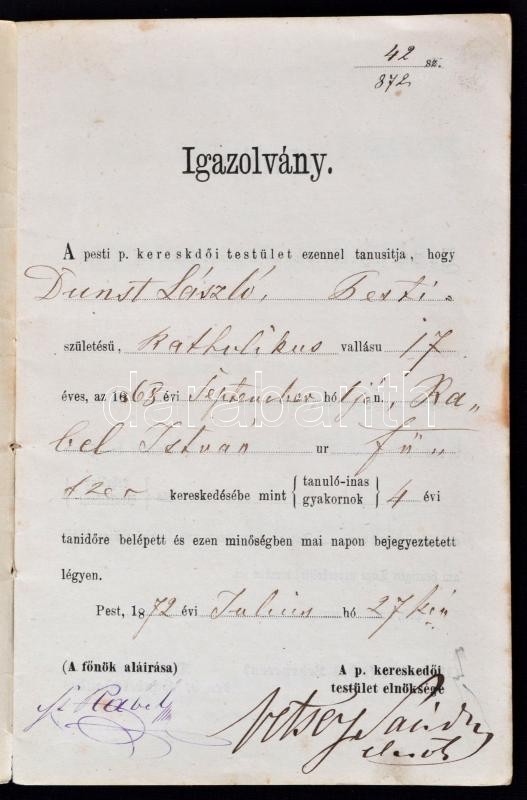 42 sz.
872
Igazolvány.
A pesti p. kereskdői testület ezennel tanusitja, hogy
Dunst László, Pesti
születésű, Katholikus vallásu 17
éves, az 1868 évi September hó 1jén, Ra„
bel István ur fü„
szer kereskedésébe mint { tanuló-inas gyakornok } 4 évi
tanidőre belépett és ezen minőségben mai napon bejegyeztetett
légyen.
Pest, 1872 évi Julius hó 27kén
(A főnök aláirása)
A p. kereskedői
testület elnöksége
Rabel
Sándor
elnök
darabanth